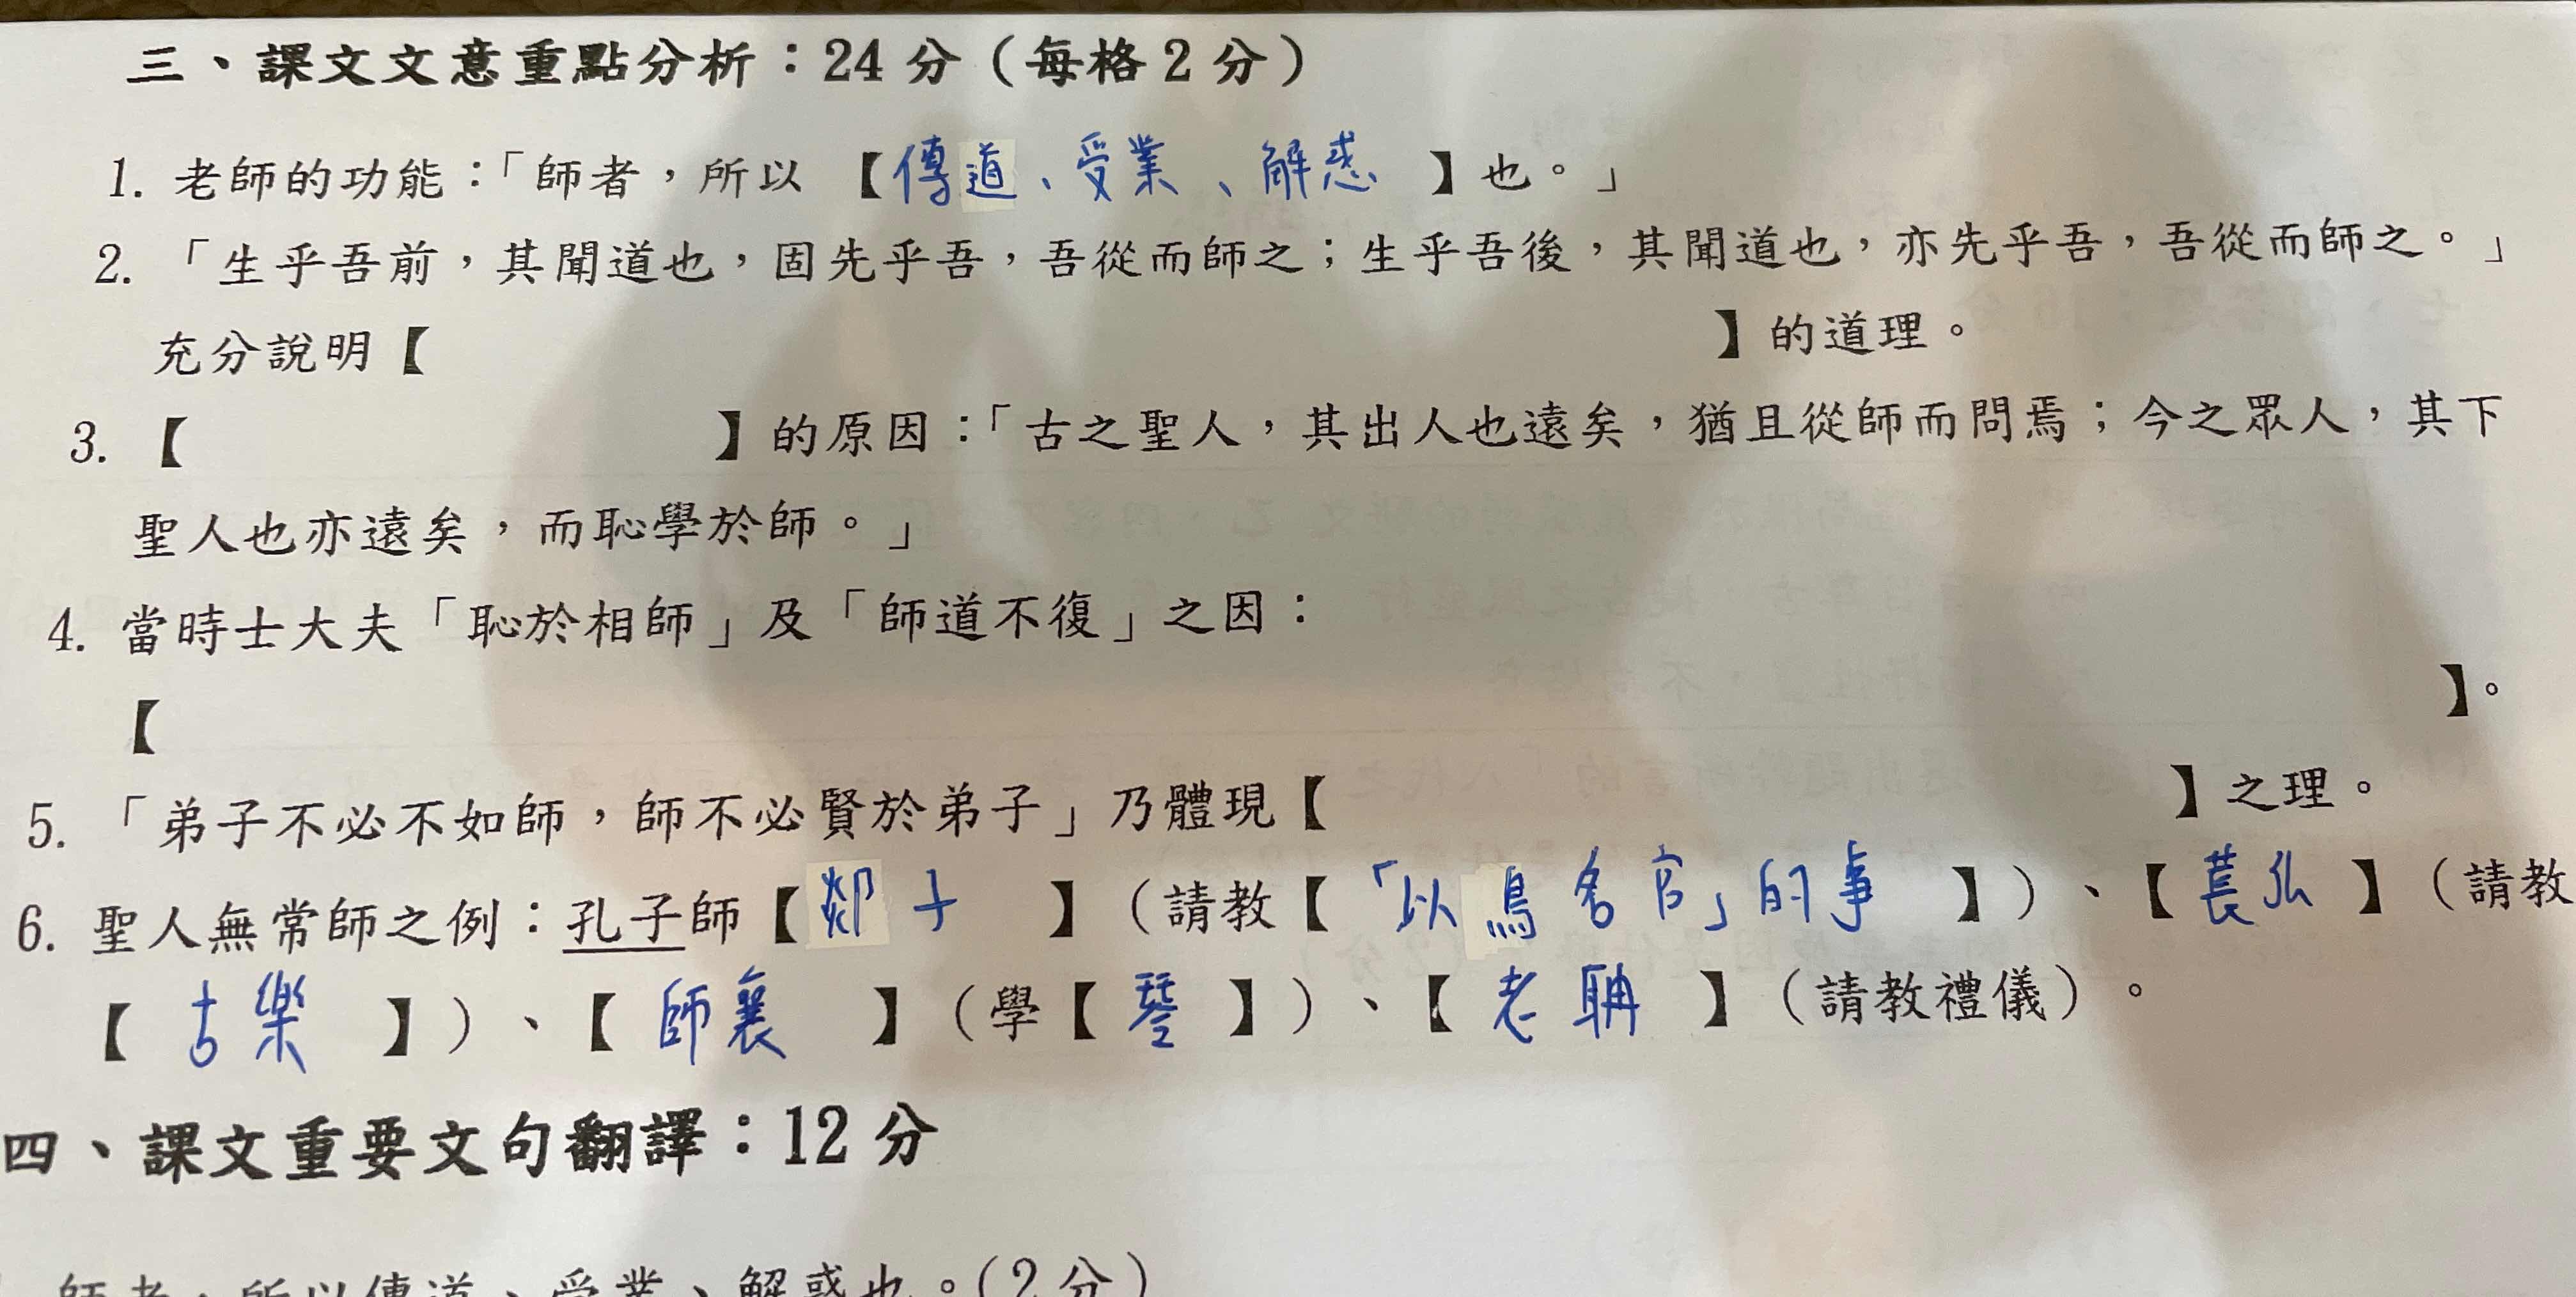 三、課文文意重點分析：24 分（每格 2 分）
1. 老師的功能：「師者，所以【傳道、受業、解惑】也。」
2. 「生乎吾前，其聞道也，固先乎吾，吾從而師之；生乎吾後，其聞道也，亦先乎吾，吾從而師之。」
充分說明【 】的道理。
3. 【 】的原因：「古之聖人，其出人也遠矣，猶且從師而問焉；今之眾人，其下
聖人也亦遠矣，而恥學於師。」
4. 當時士大夫「恥於相師」及「師道不復」之因：
【 】。
5. 「弟子不必不如師，師不必賢於弟子」乃體現【 】之理。
6. 聖人無常師之例：孔子師【郯子】（請教【「以鳥名官」的事】）、【萇弘】（請教
【古樂】）、【師襄】（學【琴】）、【老聃】（請教禮儀）。
四、課文重要文句翻譯：12 分
師者，所以傳道、受業、解惑也。（2 分）